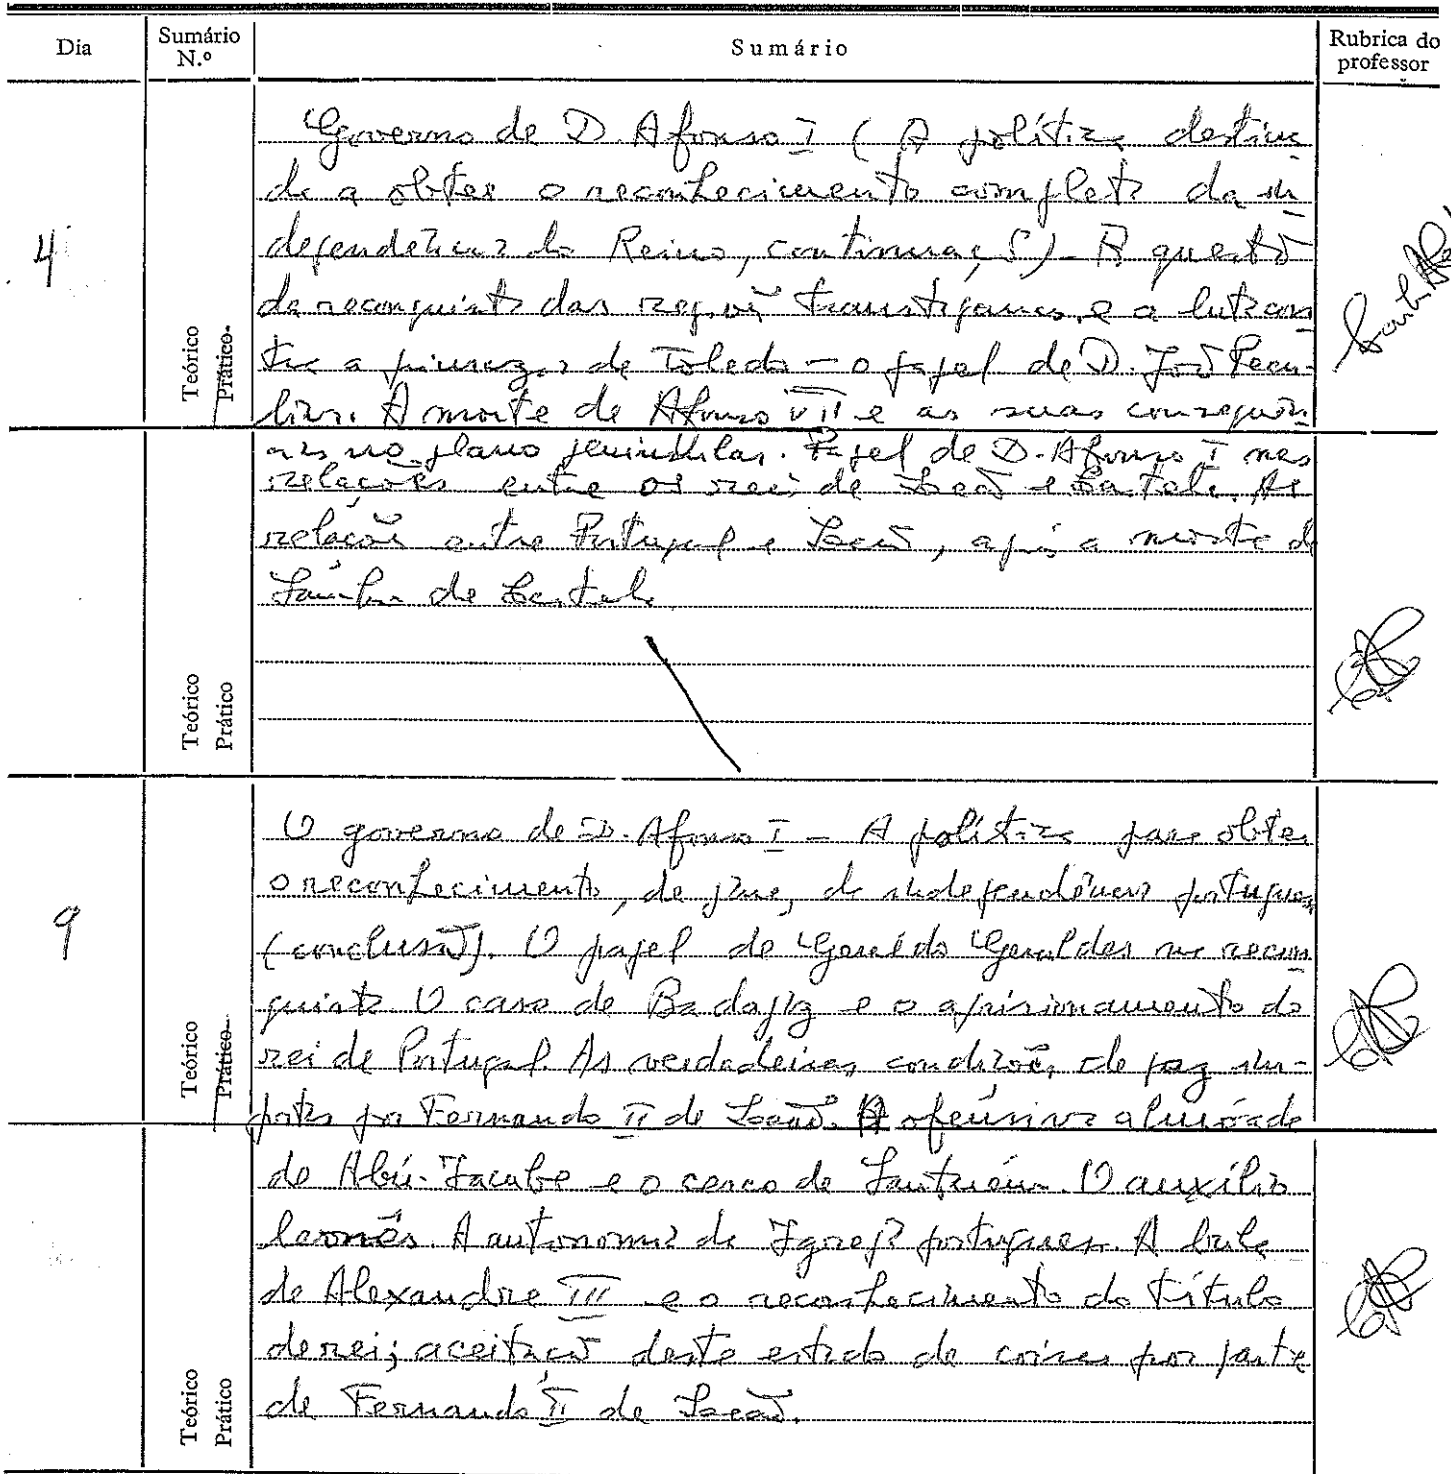 Dia
Sumário N.º
Sumário
Rubrica do professor
4
Teórico
Prático
Governo de D. Afonso I (A política destina
da a obter o reconhecimento completo da in
dependência do Reino, continuação) - A questão
da reconquista das regiões transtaganas, e a luta con
tra a primazia de Toledo - o papel de D. João Pecu-
liar. A morte de Afonso VII e as suas consequên
cias no plano peninsular. Papel de D. Afonso I nas
relações entre os reis de Leão e Castela. As
relações entre Portugal e Leão, após a morte de
Sancho de Castela.
Teórico
Prático
9
Teórico
Prático
O governo de D. Afonso I - A política para obter
o reconhecimento, de jure, da independência portuguesa
(conclusão). O papel de Geraldo Geraldes na recon
quista. O caso de Badajoz e o aprisionamento do
rei de Portugal. As verdadeiras condições de paz im-
postas por Fernando II de Leão. A ofensiva almóada
de Abú-Jacube e o cerco de Santarém. O auxílio
leonês. A autonomia da Igreja portuguesa. A bula
de Alexandre III e o reconhecimento do título
de rei; aceitação deste estado de coisas por parte
de Fernando II de Leão.
Teórico
Prático